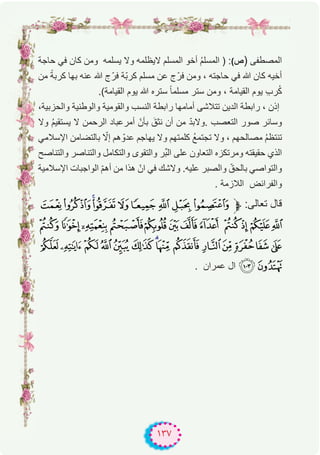 المصطفى (ص): ( المسلمُ أخو المسلم لايظلمه ولا يسلمه ومن كان في حاجة
أخيه كان الله في حاجته ، ومن فرّج عن مسلم كربّة فرّج الله عنه بها كربةً من
كُربِ يوم القيامة ، ومن ستر مسلماً ستره الله يوم القيامة).
إذن ، رابطة الدين تتلاشى أمامها رابطة النسب والقومية والوطنية والحزبية،
وسائر صور التعصب .ولابدَّ من أن نثق بأنَّ أمرعباد الرحمن لا يستقيمُ ولا
تنتظمُ مصالحهم ، ولا تجتمعُ كلمتهم ولا يهاجم عدوّهم إلّا بالتضامن الإسلامي
الذي حقيقته ومرتكزه التعاون على البّر والتقوى والتكامل والتناصر والتناصح
والتواصي بالحقّ والصبر عليه. ولاشك في انَّ هذا من أهمّ الواجبات الإسلامية
والفرائض اللازمة .
قال تعالى: ﴿ وَاعْتَصِمُوا بِحَبْلِ اللَّهِ جَمِيعًا وَلَا تَفَرَّقُوا وَاذْكُرُوا نِعْمَتَ
اللَّهِ عَلَيْكُمْ إِذْ كُنْتُمْ أَعْدَاءً فَأَلَّفَ بَيْنَ قُلُوبِكُمْ فَأَصْبَحْتُمْ بِنِعْمَتِهِ إِخْوَانًا وَكُنْتُمْ
عَلَى شَفَا حُفْرَةٍ مِنَ النَّارِ فَأَنْقَذَكُمْ مِنْهَا كَذَلِكَ يُبَيِّنُ اللَّهُ لَكُمْ آيَاتِهِ لَعَلَّكُمْ
تَهْتَدُونَ ١٠٣ ﴾ ال عمران .
١٣٧